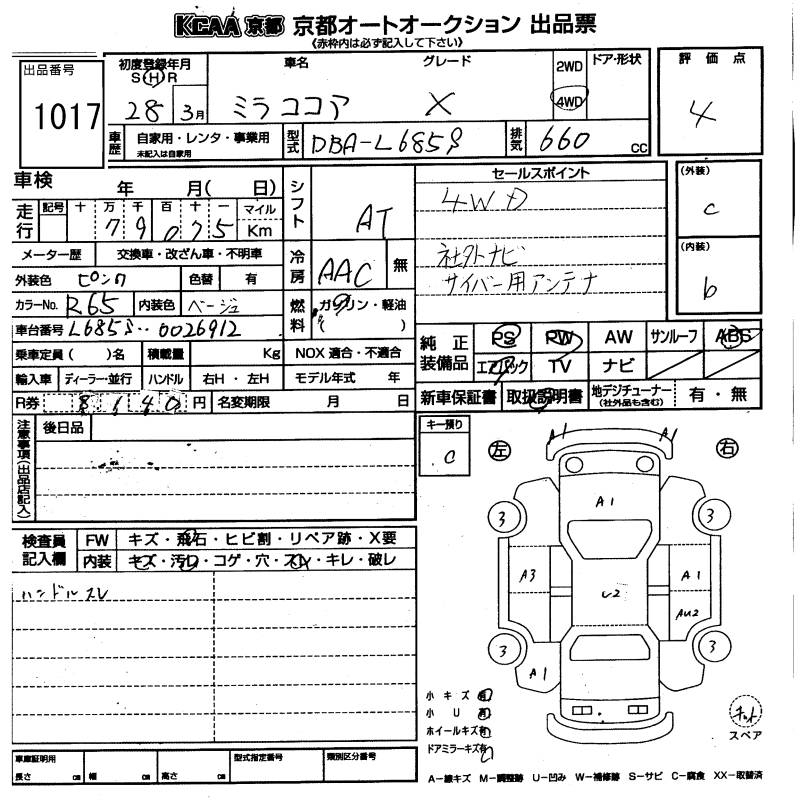 KCAA 京都 京都オートオークション 出品票
《赤枠内は必ず記入して下さい》
出品番号
1017
初度登録年月
S H R
28 3月
車名
ミラココア
グレード
X
2WD
4WD
ドア・形状
評価点
4
車歴
自家用・レンタ・事業用
未記入は自家用
型式
DBA-L685S
排気
660 CC
車検
年 月( 日)
走行
記号 十 万 千 百 十 一 マイル
7 9 0 7 5 Km
メーター歴 交換車・改ざん車・不明車
外装色 ピンク 色替 有
カラーNo. R65 内装色 ベージュ
車台番号 L685S-0026912
乗車定員( )名 積載量 Kg
輸入車 ディーラー・並行 ハンドル 右H・左H
R券 8,140 円 名変期限 月 日
シフト
AT
冷房
AAC 無
燃料
ガソリン・軽油
( )
NOX 適合・不適合
モデル年式 年
セールスポイント
4WD
社外ナビ
サイバー用アンテナ
(外装)
C
(内装)
b
純正装備品
PS RW AW サンルーフ ABS
エアバック TV ナビ
新車保証書 取扱説明書 地デジチューナー
(社外品も含む)
有・無
注意事項(出品店記入)
後日品
キー預り
C
検査員記入欄
FW キズ・飛石・ヒビ割・リペア跡・X要
内装 キズ・汚れ・コゲ・穴・スレ・キレ・破レ
ハンドルスレ
左 右
A1 A1
A1
3 3
A3 A1
U2
AU2
3 3
A1
小キズ 有
小U 有
ホイールキズ有
ドアミラーキズ有
キット
スペア
車庫証明用
長さ cm 幅 cm 高さ cm
型式指定番号
類別区分番号
A−線キズ M−調整跡 U−凹み W−補修跡 S−サビ C−腐食 XX−取替済